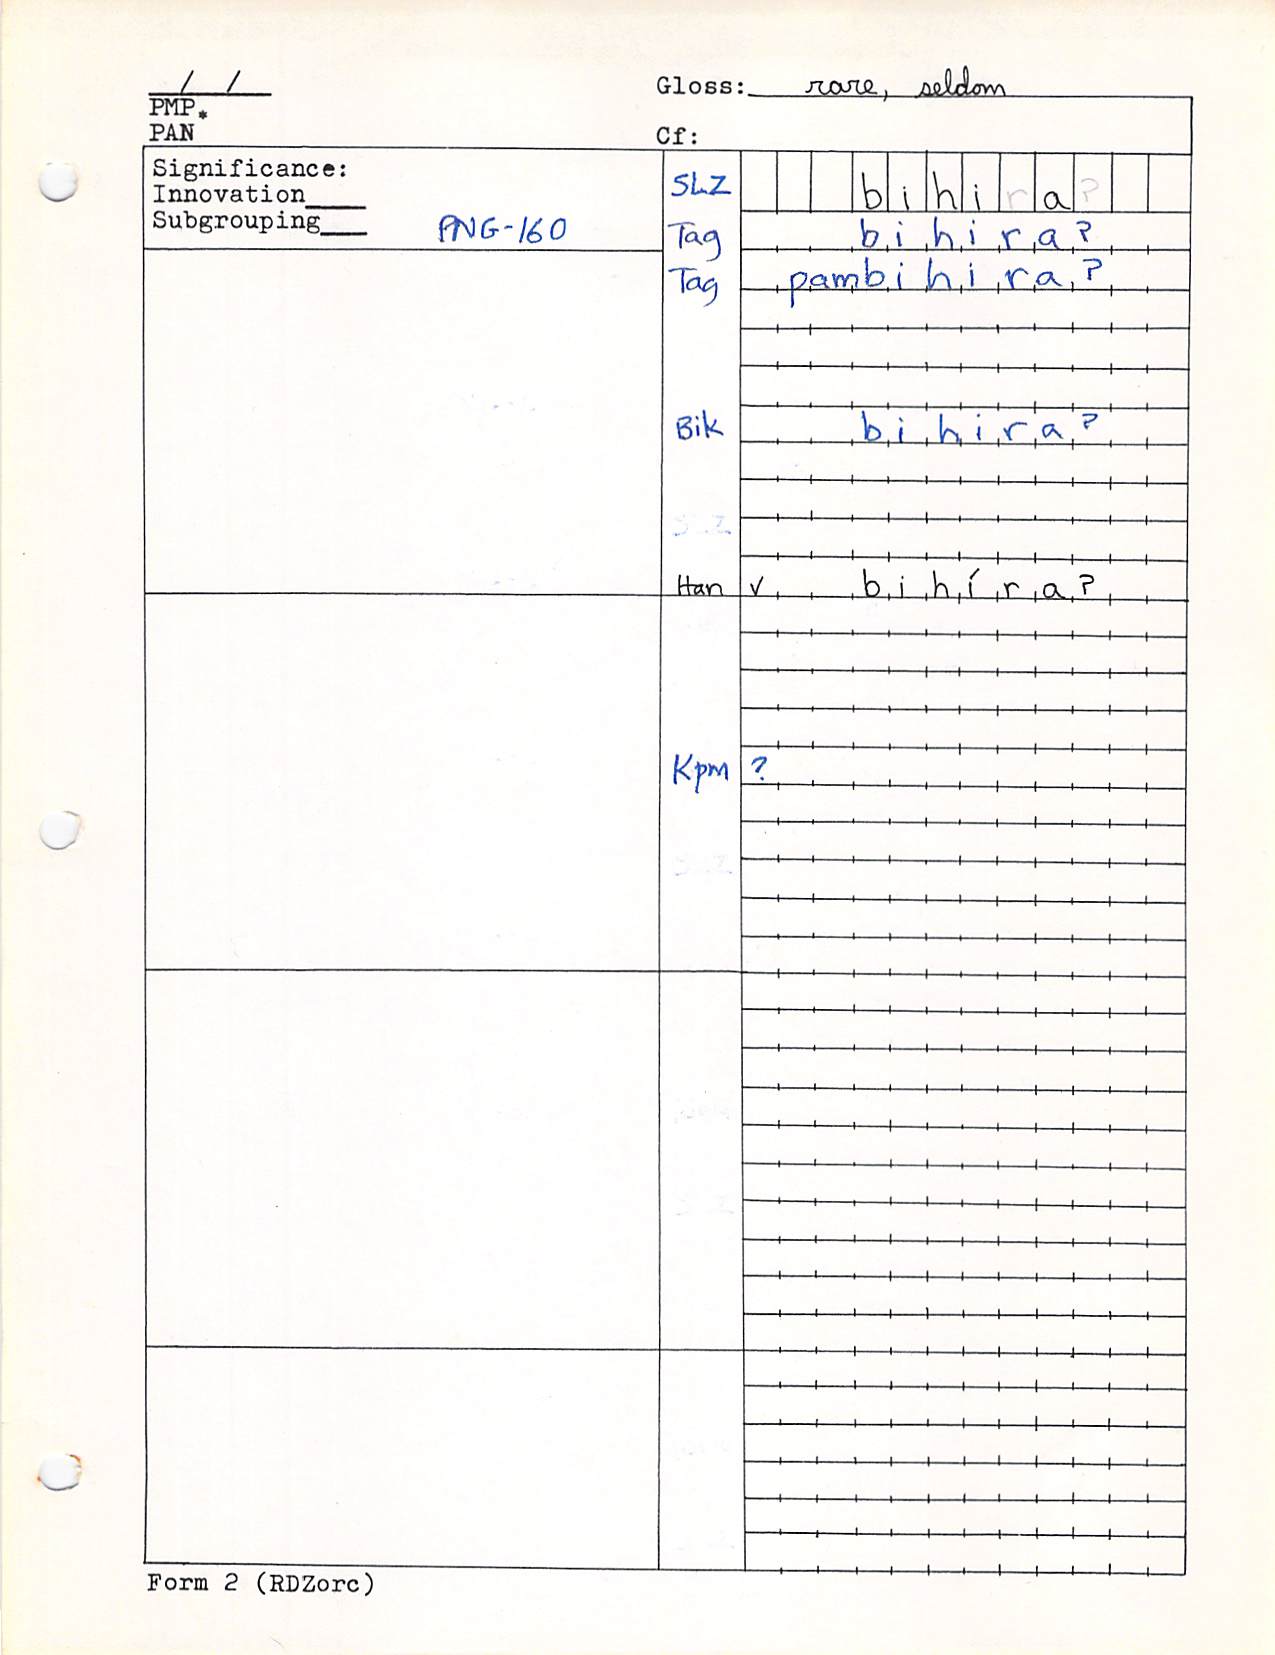 / /
Gloss: rare, seldom
PMP*
PAN
Cf:
Significance:
Innovation____
Subgrouping____
PNG-160
SLZ bihira?
Tag bihira?
Tag pambihira?
Bik bihira?
Han √ bihíra?
Kpm ?
Form 2 (RDZorc)